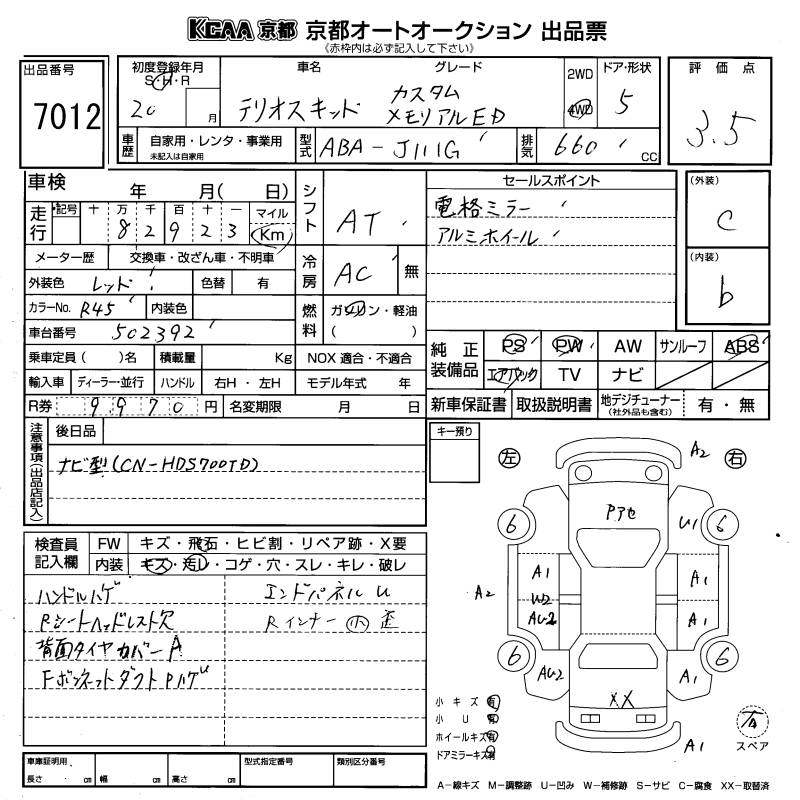 KCAA 京都 京都オートオークション 出品票
《赤枠内は必ず記入して下さい》
出品番号
7012
初度登録年月
S・H・R
20 月
車名
テリオスキッド
グレード
カスタム
メモリアルED
2WD
4WD
ドア・形状
5
評価点
3.5
車歴
自家用・レンタ・事業用
未記入は自家用
型式
ABA-J111G
排気
660 cc
車検 年 月( 日)
走行
記号 十 万 千 百 十 一 マイル
8 2 9 2 3 Km
メーター歴 交換車・改ざん車・不明車
外装色 レッド 色替 有
カラーNo. R45 内装色
車台番号 502392
乗車定員( )名 積載量 Kg
輸入車 ディーラー・並行 ハンドル 右H・左H
R券 9970円 名変期限 月 日
シフト
AT
冷房
AC 無
燃料
ガソリン・軽油
( )
NOX 適合・不適合
モデル年式 年
セールスポイント
電格ミラー
アルミホイール
(外装)
C
(内装)
b
純正装備品
PS PW AW サンルーフ ABS
エアバック TV ナビ
新車保証書 取扱説明書 地デジチューナー(社外品も含む) 有・無
注意事項(出品店記入)
後日品
ナビ型(CN-HDS700TD)
キー預り
検査員記入欄
FW キズ・飛石・ヒビ割・リペア跡・X要
内装 キズ・汚レ・コゲ・穴・スレ・キレ・破レ
ハンドルハゲ
エンドパネルU
Rシートヘッドレスト欠
Rインナー 小 歪
背面タイヤカバーA
Fボンネットダクト Pハゲ
左
右
A2
6
6
Pアセ
U1
A1
A1
A2
W2
AU2
A1
6
6
AU2
A1
XX
A1
小キズ 有
小U 有
ホイールキズ 有
ドアミラーキズ 有
スペア
A-線キズ M-調整跡 U-凹み W-補修跡 S-サビ C-腐食 XX-取替済
車庫証明用
長さ cm 幅 cm 高さ cm
型式指定番号
類別区分番号